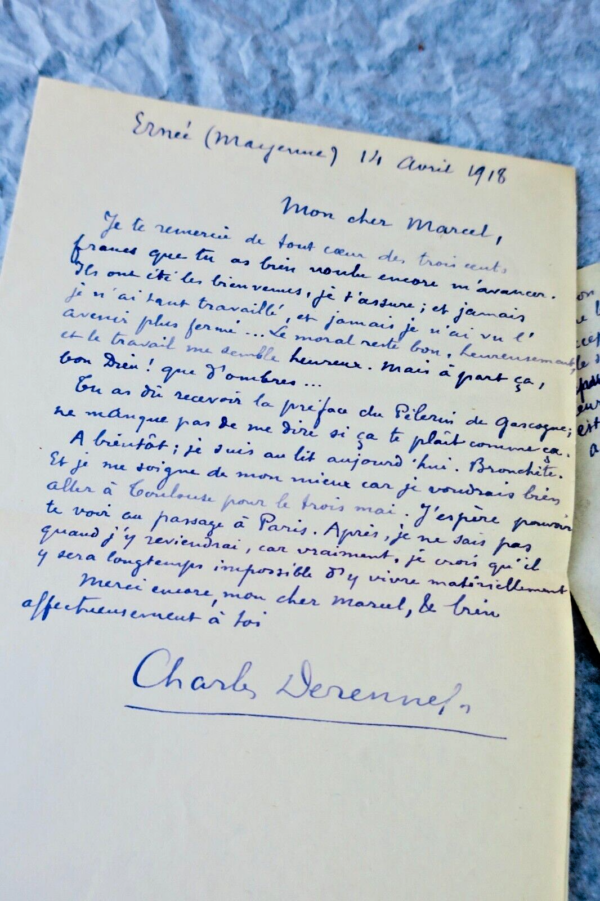 Ernée (Mayenne) 14 Avril 1918
Mon cher Marcel,
Je te remercie de tout cœur des trois cents
francs que tu as bien voulu encore m'avancer.
Ils ont été les bienvenus, je t'assure ; et jamais
je n'ai tant travaillé, et jamais je n'ai vu l'
avenir plus fermé... Le moral reste bon, heureusement,
et le travail me semble heureux. Mais à part ça,
bon Dieu ! que d'ombres...
Tu as dû recevoir la préface du Pèlerin de Gascogne ;
ne manque pas de me dire si ça te plaît comme ça.
A bientôt ; je suis au lit aujourd'hui. Bronchite.
Et je me soigne de mon mieux car je voudrais bien
aller à Toulouse pour le trois mai. J'espère pouvoir
te voir au passage à Paris. Après, je ne sais pas
quand j'y reviendrai, car vraiment, je crois qu'il
y sera longtemps impossible d'y vivre matériellement
Merci encore, mon cher Marcel, & bien
affectueusement à toi
Charles Derennes